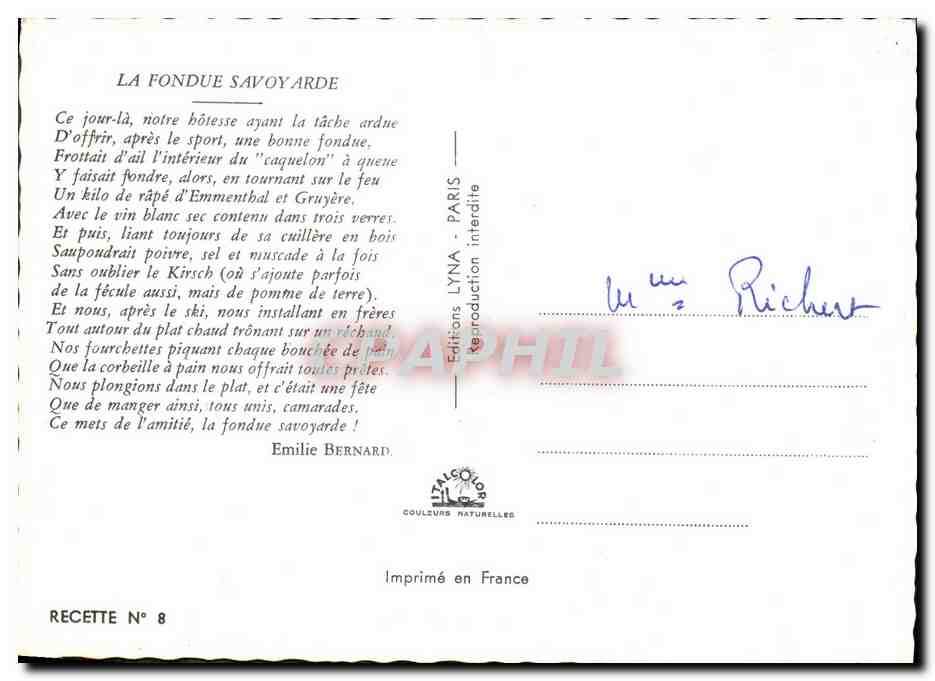 LA FONDUE SAVOYARDE
Ce jour-là, notre hôtesse ayant la tâche ardue
D'offrir, après le sport, une bonne fondue,
Frottait d'ail l'intérieur du "caquelon" à queue
Y faisait fondre, alors, en tournant sur le feu
Un kilo de râpé d'Emmenthal et Gruyère.
Avec le vin blanc sec contenu dans trois verres.
Et puis, liant toujours de sa cuillère en bois
Saupoudrait poivre, sel et muscade à la fois
Sans oublier le Kirsch (où s'ajoute parfois
de la fécule aussi, mais de pomme de terre).
Et nous, après le ski, nous installant en frères
Tout autour du plat chaud trônant sur un réchaud,
Nos fourchettes piquant chaque bouchée de pain
Que la corbeille à pain nous offrait toutes prêtes.
Nous plongions dans le plat, et c'était une fête
Que de manger ainsi, tous unis, camarades.
Ce mets de l'amitié, la fondue savoyarde !
Emilie BERNARD.
Editions LYNA - PARIS
Reproduction interdite
CPAPHIL
Mme Richert
ITALCOLOR
COULEURS NATURELLES
Imprimé en France
RECETTE N° 8